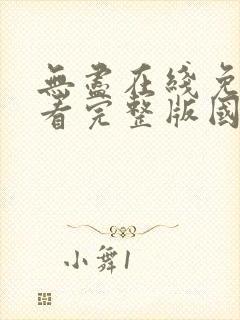 無盡在綫免
看完整版國
小舞1